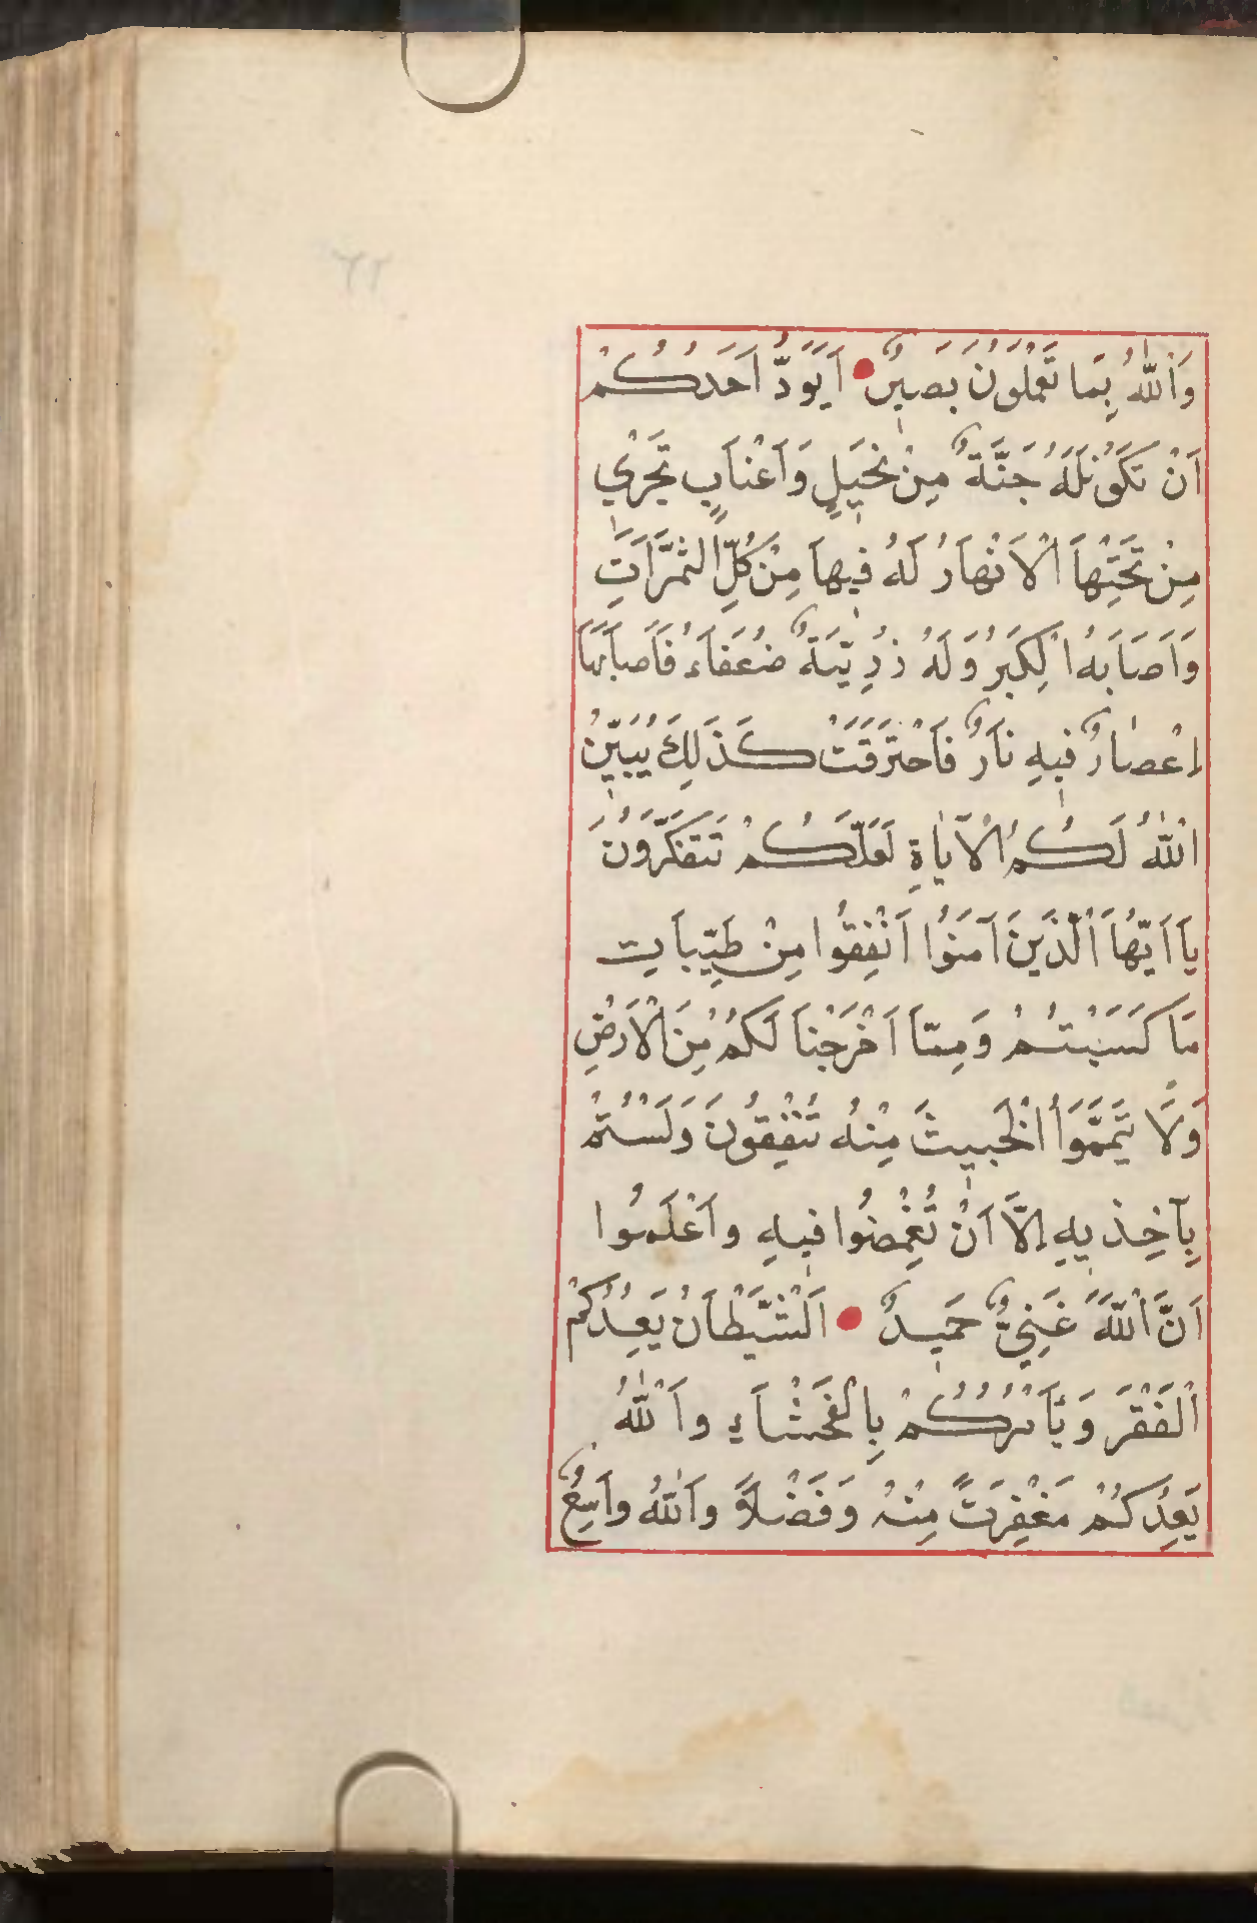 وَاَللّٰهُ بِمَا تَعْمَلُونَ بَصِيرٌ اَيَوَدُّ اَحَدُكُمْ
اَنْ تَكَوُنَلَهُ جَنَّةٌ مِنْ نَخَيلٍ وَاَعْنَابٍ تَجْرٖي
مِنْ تَحْتِهَا الْاَنْهَارُ لَهُ فِيهَا مِنْ كُلِّ الثَّمَرَاتِ
وَاَصَابَهُ الْكِبَرُ وَلَهُ ذُرِيَّةٌ ضُعَفَاءُ فَاَصَابَهَا
اِعْصَارٌ فِيهِ نَارٌ فَاَحْتَرَقَتْ كَذَلِكَ يُبَيِّنُ
اَللّٰهُ لَكُمُ الْآيَاةِ لَعَلَّكُمْ تَتَفَكَّرَوُنَ
يَا اَيُّهَا اَلَّذَينَ آمَنَوُا اَنْفِقُوا مِنْ طَيِّبَاتِ
مَا كَسَبْتُمْ وَمِمَّا اَخْرَجْنَا لَكُمْ مِنَ الْاَرْضِ
وَلَا تَيَمَّمَوُا الْخَبِيثَ مِنْهُ تُنْفِقُونَ وَلَسْتُمْ
بِآخِذِيهِ اِلَّا اَنْ تُغْمِضُوا فِيهِ وَاَعْلَمُوا
اَنَّ اَللّٰهَ غَنِيٌّ حَمِيدٌ اَلْشَّيْطَانُ يَعِدُكُمْ
اَلْفَقْرَ وَيَأْمُرُكُمْ بِالْفَحْشَاءِ وَاَللّٰهُ
يَعِدُكُمْ مَغْفِرَتً مِنْهُ وَفَضْلَاً وَاَللّٰهُ وَاَسِعٌ